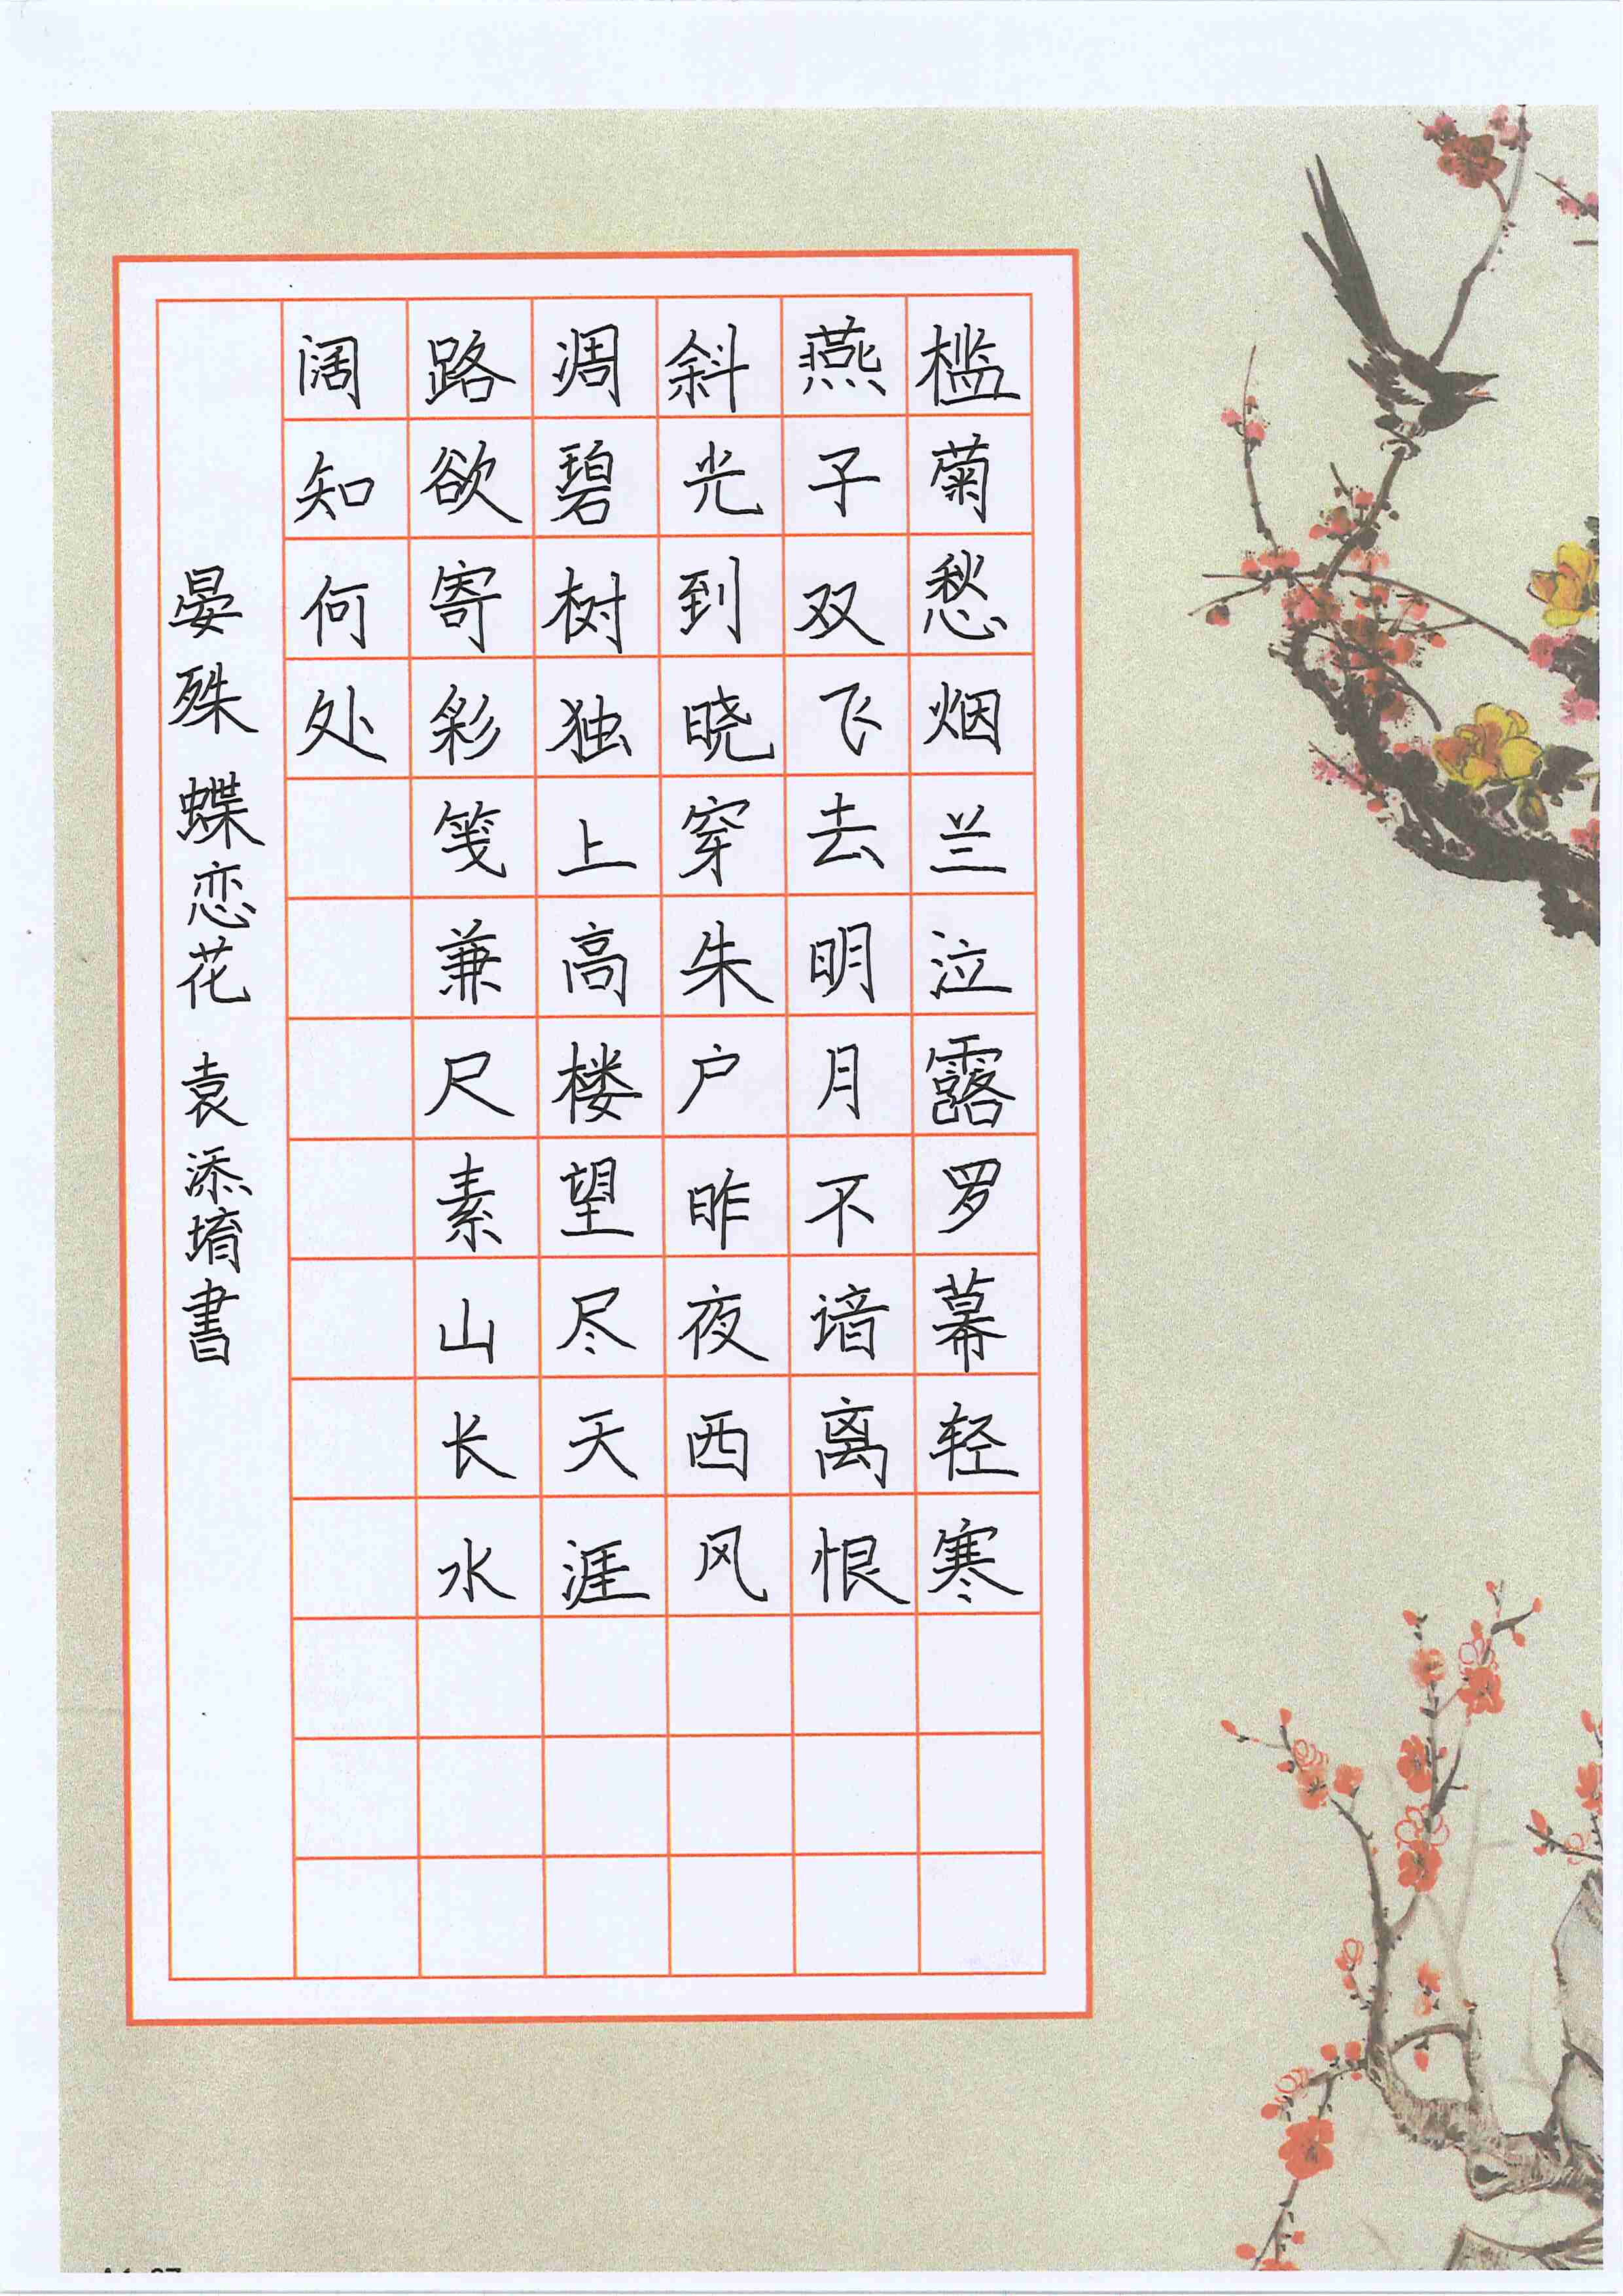 槛菊愁烟兰泣露罗幕轻寒
燕子双飞去明月不谙离恨
斜光到晓穿朱户昨夜西风
凋碧树独上高楼望尽天涯
路欲寄彩笺兼尺素山长水
阔知何处
晏殊 蝶恋花 袁添堉書